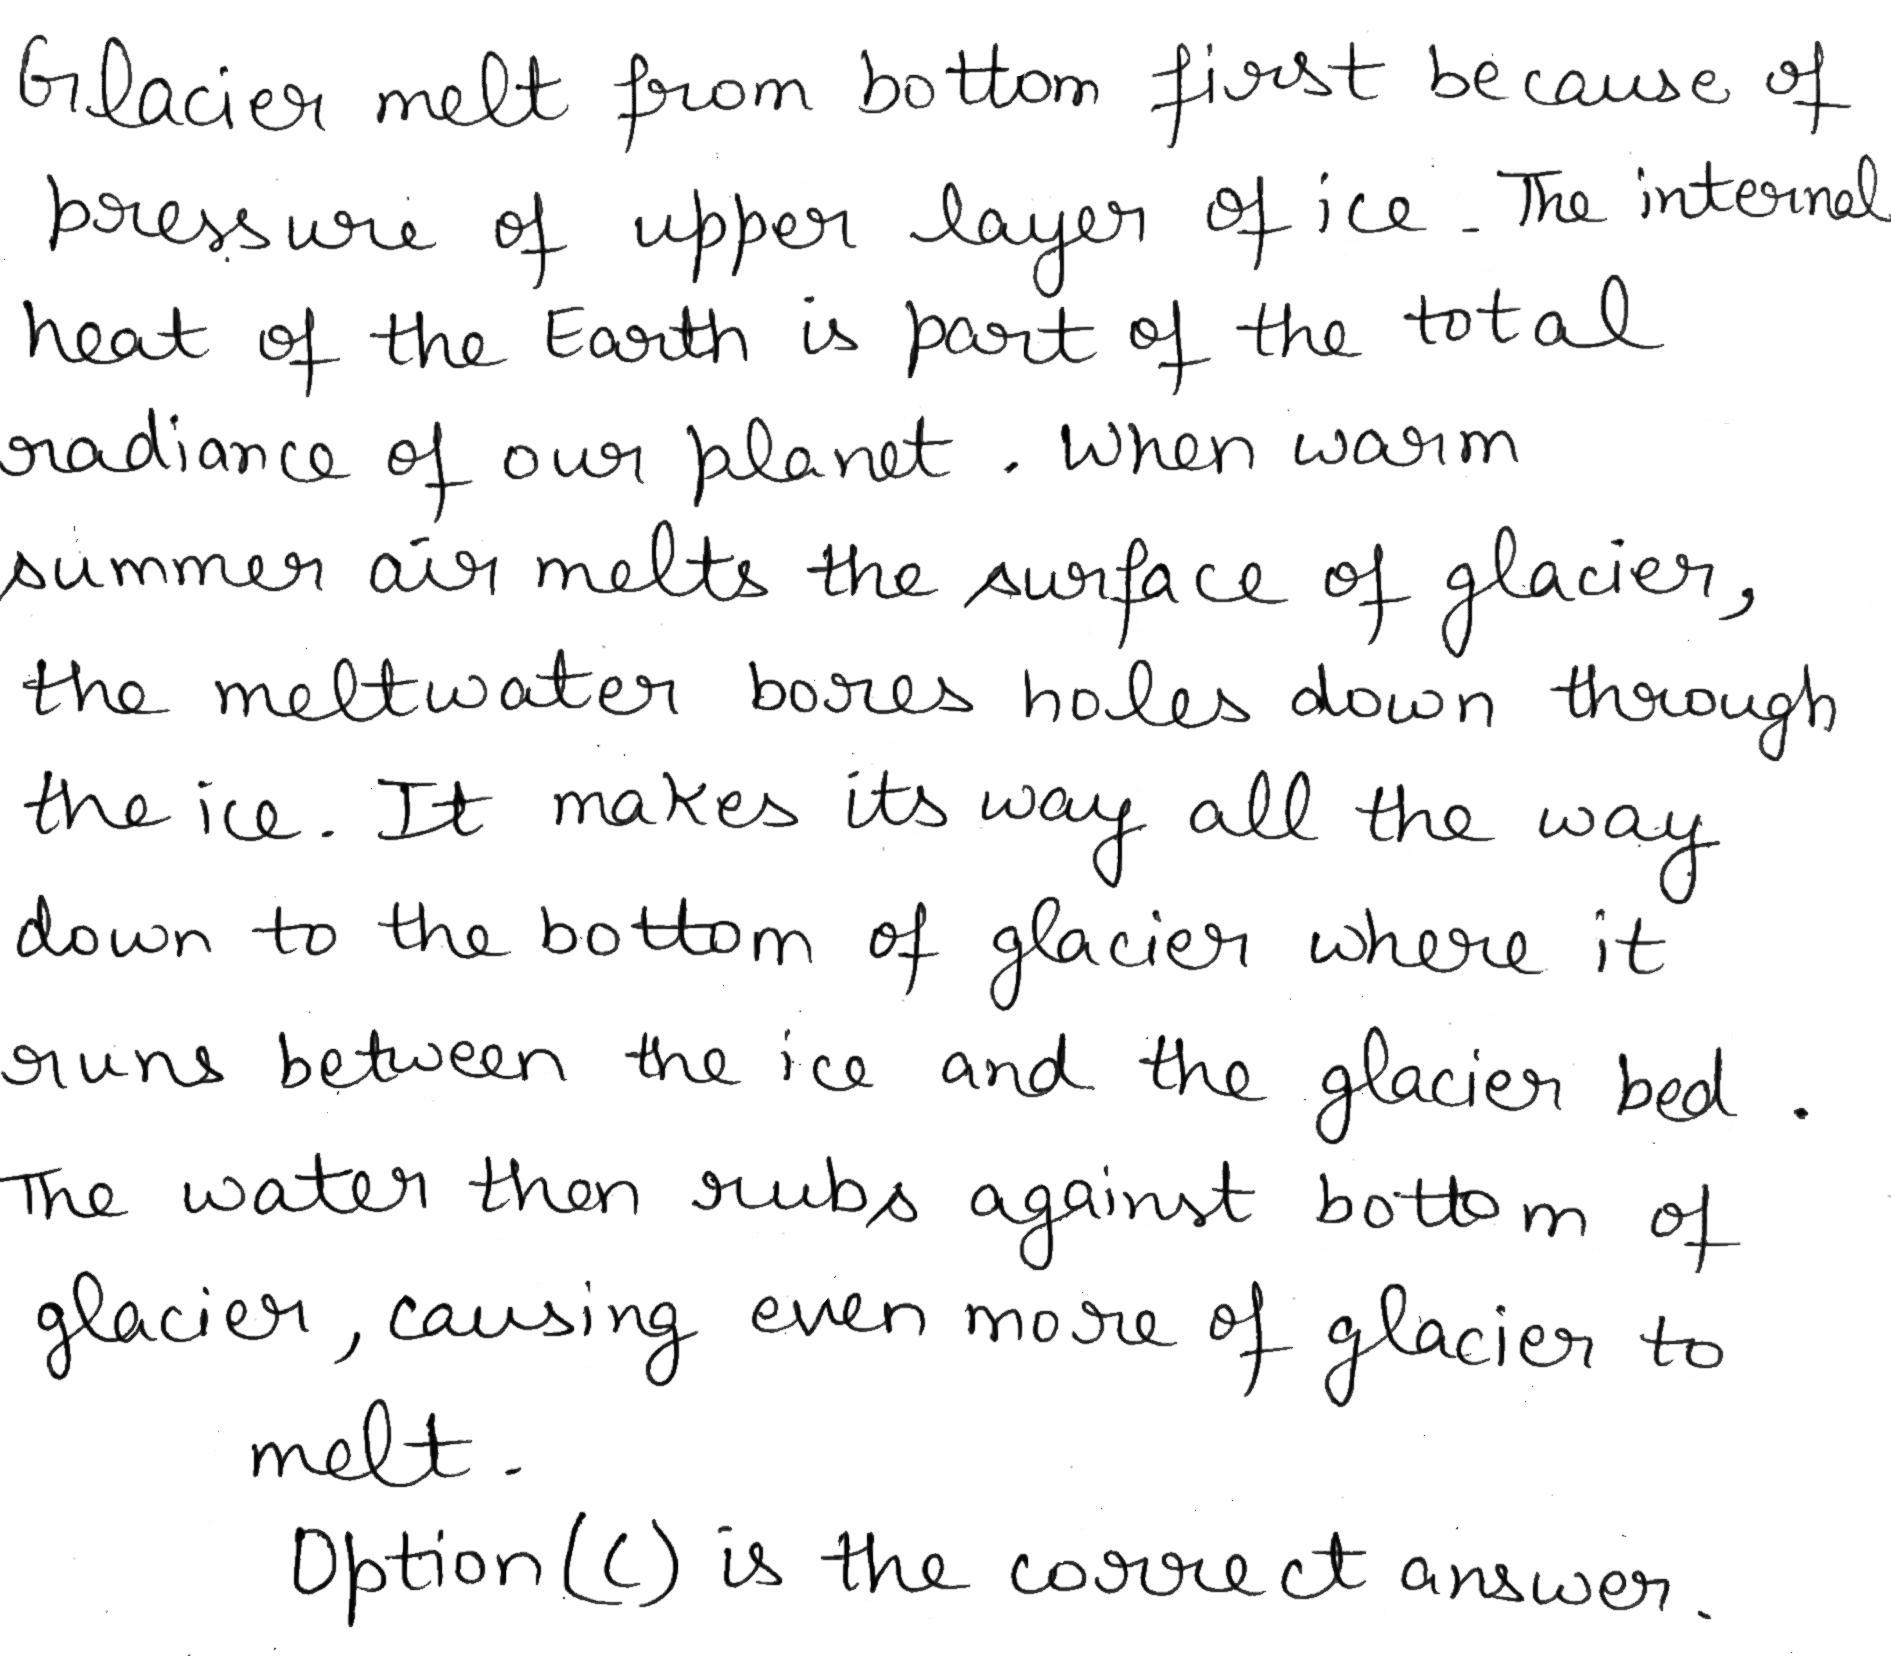 Glacier melt from bottom first because of
pressure of upper layer of ice. The internal
heat of the Earth is part of the total
radiance of our planet. When warm
summer air melts the surface of glacier,
the meltwater bores holes down through
the ice. It makes its way all the way
down to the bottom of glacier where it
runs between the ice and the glacier bed.
The water then rubs against bottom of
glacier, causing even more of glacier to
melt.
Option (C) is the correct answer.